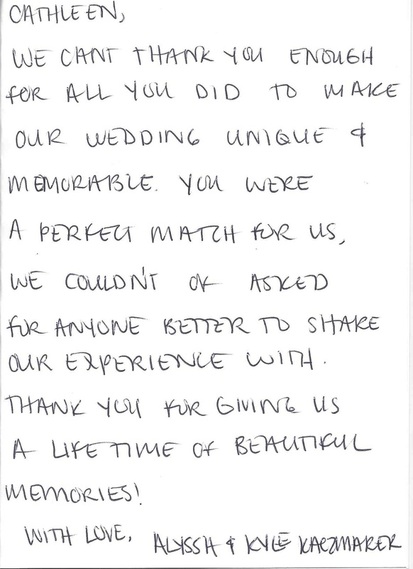 CATHLEEN,
WE CANT THANK YOU ENOUGH
FOR ALL YOU DID TO MAKE
OUR WEDDING UNIQUE &
MEMORABLE. YOU WERE
A PERFECT MATCH FOR US,
WE COULDN'T OF ASKED
FOR ANYONE BETTER TO SHARE
OUR EXPERIENCE WITH.
THANK YOU FOR GIVING US
A LIFE TIME OF BEAUTIFUL
MEMORIES!
WITH LOVE, ALYSSA & KYLE KACZMAREK